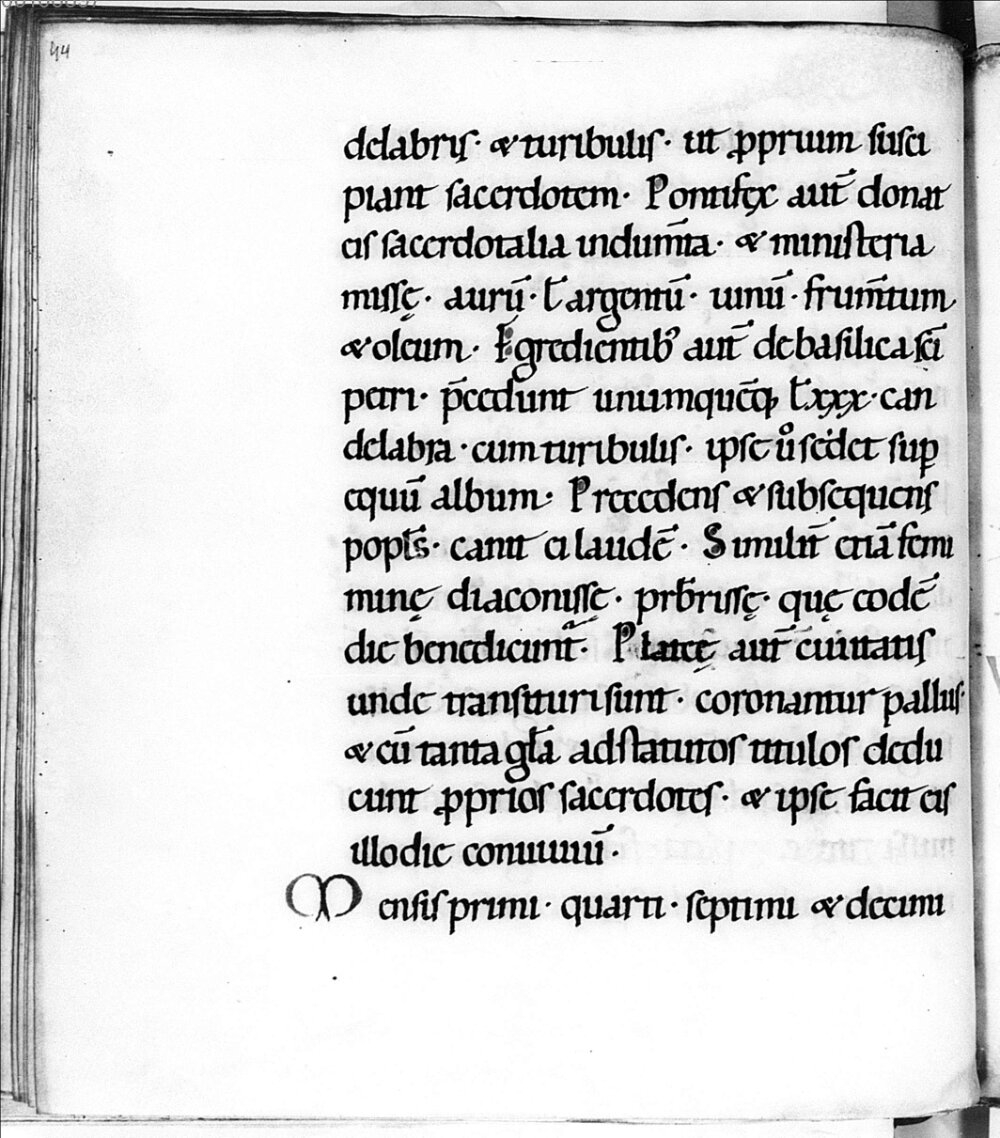 44
delabris · & turibulis · ut ꝓprium susci
piant sacerdotem · Pontifex aut̄ donat
eis sacerdotalia indum̄ta · & ministeria
missę · aurū · ł argentū · uinū · frum̄tum
& oleum · Egredientibꝰ aut̄ de basilica sc̄i
petri · p̄cedunt unumquēq; lxxx · can
delabra · cum turibulis · ipse ů sedet suꝑ
equū album · Precedens & subsequens
popls̄ · canit ei laudē · Similit̄ etiā femi
minę diaconissę · prb̄rissę · quę eodē
die benedicunt᷑ · Plateę aut̄ ciuitatis
unde transituri sunt · coronantur palliis ·
& cū tanta gl̄a ad statutos titulos dedu
cunt ꝓprios sacerdotes · & ipse facit eis
illo die conuiuiū ·
Mensis primi · quarti · septimi & decimi